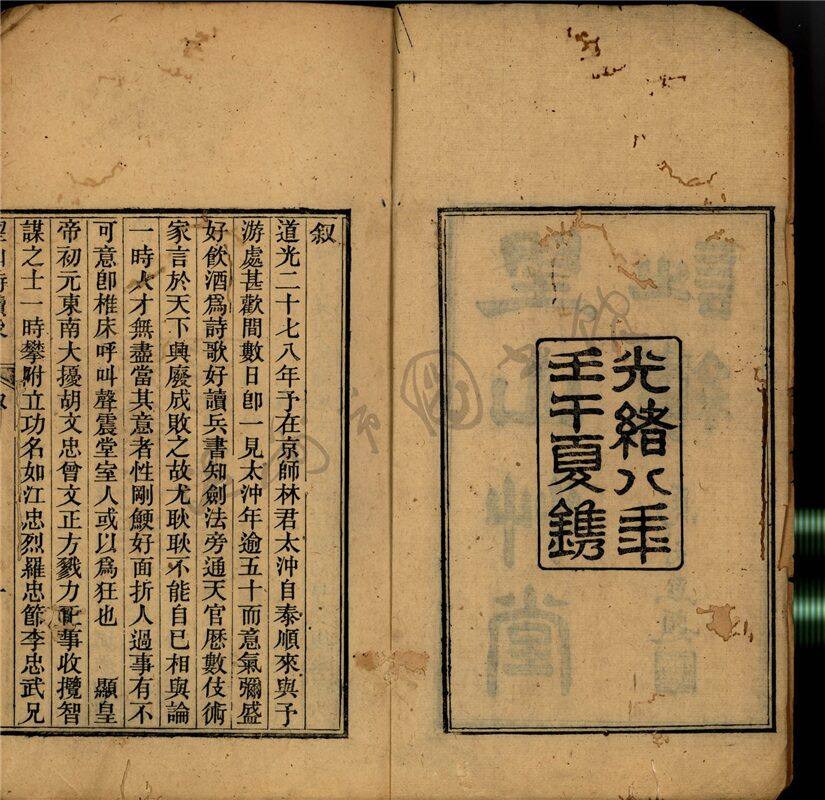 光緒八年
壬午夏鐫
叙
道光二十七八年予在京師林君太沖自泰順來與予
游處甚歡間數日卽一見太沖年逾五十而意氣彌盛
好飲酒爲詩歌好讀兵書知劍法旁通天官厯數伎術
家言於天下興廢成敗之故尤耿耿不能自已相與論
一時人才無盡當其意者性剛鯁好面折人過事有不
可意卽椎床呼叫聲震堂室人或以爲狂也　　顯皇
帝初元東南大擾胡文忠曾文正方戮力戎事收攬智
謀之士一時攀附立功名如江忠烈羅忠節李忠武兄